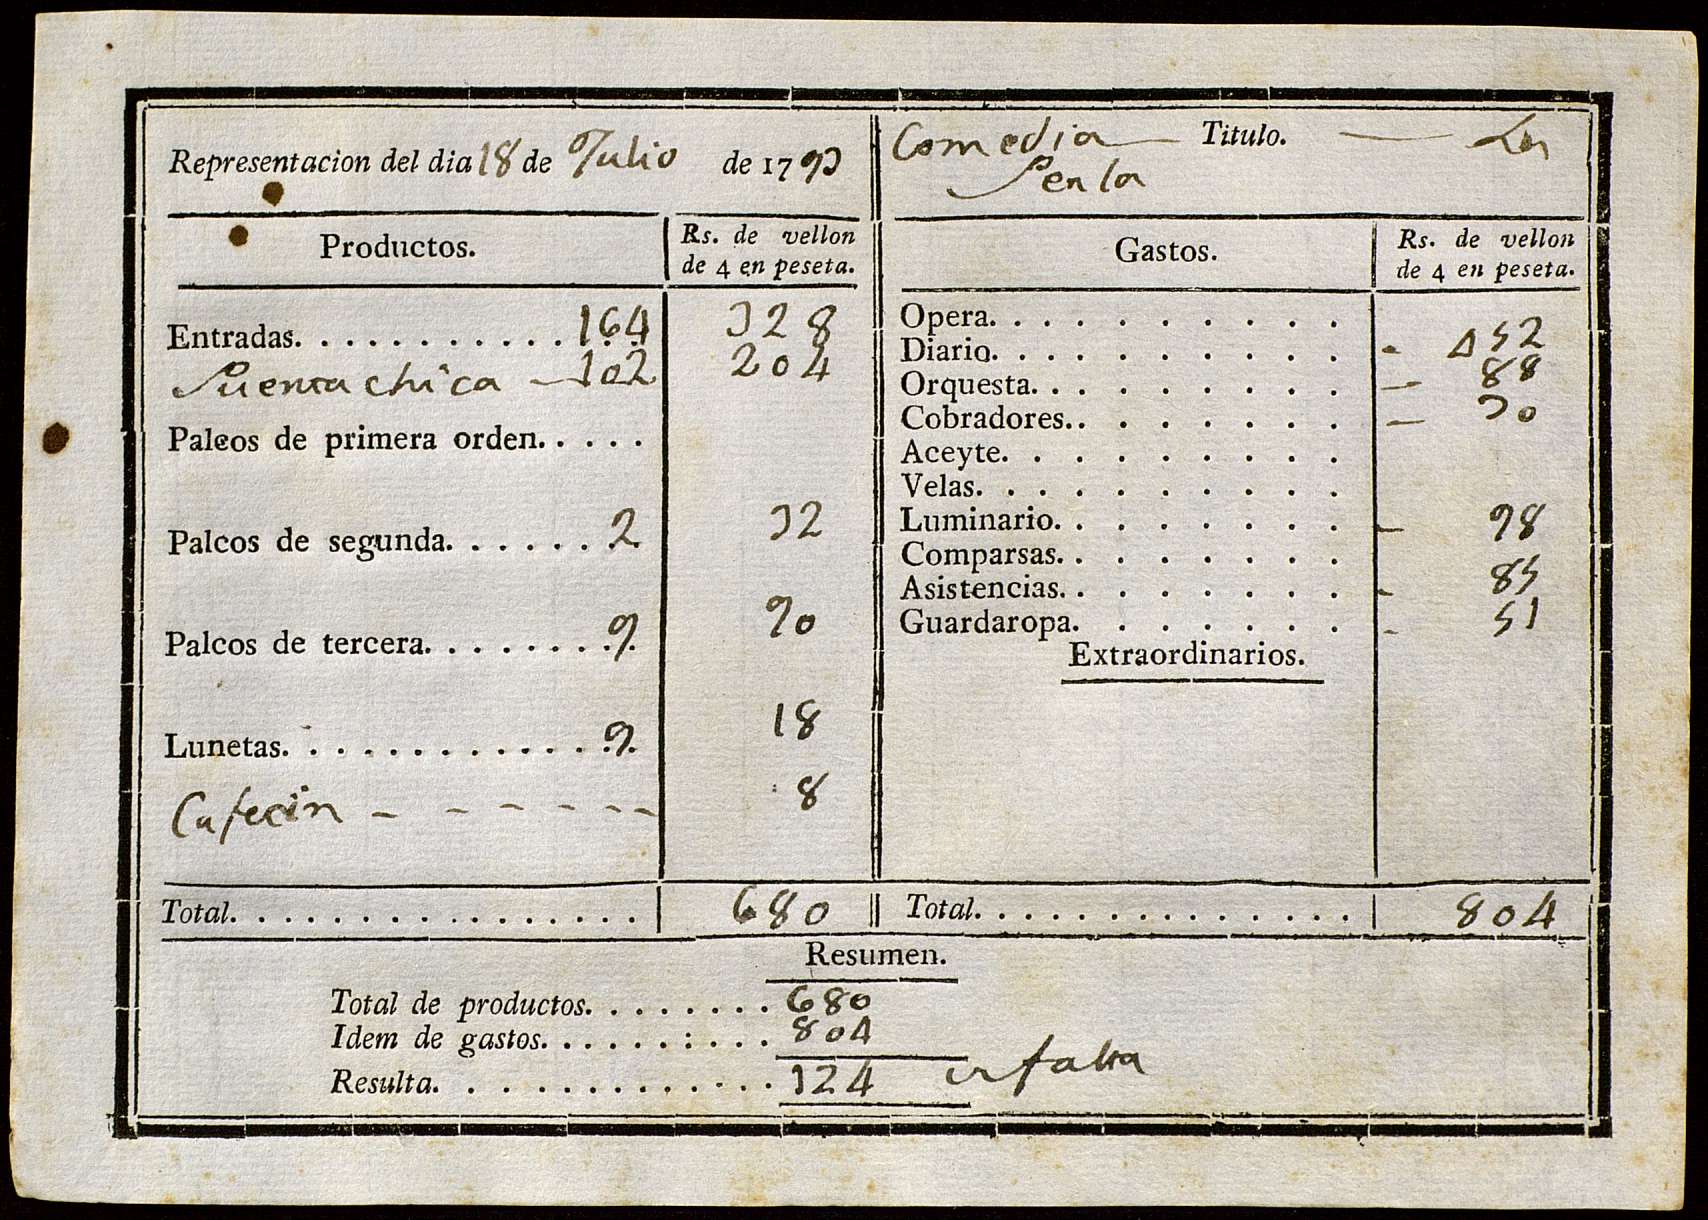 Representacion del dia 18 de Julio de 1793
Productos. Rs. de vellon de 4 en peseta.
Entradas. . . . . . . . . . . 164 328
Puerta chica — 102 204
Palcos de primera orden. . . . .
Palcos de segunda. . . . . . . 2 32
Palcos de tercera. . . . . . . . 9 90
Lunetas. . . . . . . . . . . . . 9 18
Cafecin - - - - - - 8
Total. . . . . . . . . . . . . . . . 680
Comedia — Titulo. — La
Perla
Gastos. Rs. de vellon de 4 en peseta.
Opera. . . . . . . . . .
Diario. . . . . . . . . . - 452
Orquesta. . . . . . . . . — 88
Cobradores. . . . . . . . — 30
Aceyte. . . . . . . . . .
Velas. . . . . . . . . .
Luminario. . . . . . . . - 98
Comparsas. . . . . . . .
Asistencias. . . . . . . . - 85
Guardaropa. . . . . . . - 51
Extraordinarios.
Total. . . . . . . . . . . . . . . 804
Resumen.
Total de productos. . . . . . . . 680
Idem de gastos. . . . . . : . . . 804
Resulta. . . . . . . . . . . . . 124 falta